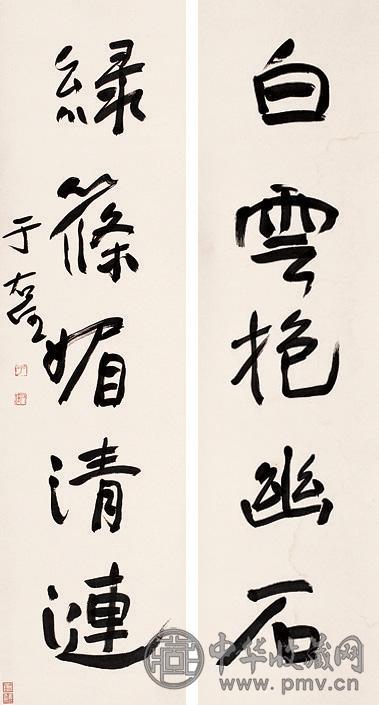 白雲抱幽石
綠篠媚清漣
于右任
中华收藏网
www.pmv.cn